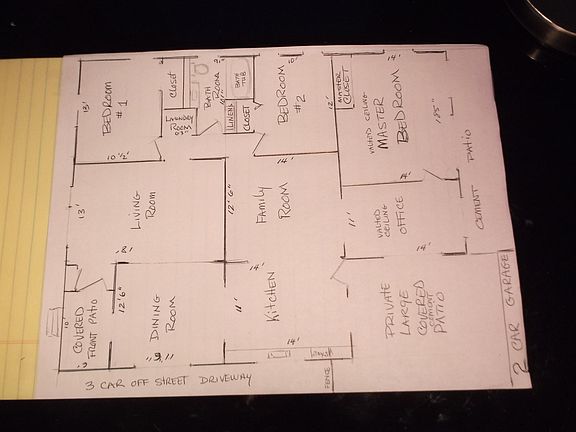 BEDROOM
#1
13'
10 1/2'
CLOSET
LAUNDRY
ROOM
BATH
ROOM
BATH
TUB
LINENS
CLOSET
BEDROOM
#2
10'
12'
14'
MASTER
CLOSET
14'
VALTED CEILING
MASTER
BEDROOM
14'
PATIO
CEMENT
LIVING
ROOM
13'
18'
12' 6"
FAMILY
ROOM
VALTED
CEILING
OFFICE
11'
14'
COVERED
FRONT PATIO
10'
12' 6"
DINING
ROOM
KITCHEN
14'
11'
14'
PRIVATE
LARGE
COVERED
PATIO
2 CAR GARAGE
3 CAR OFF STREET DRIVEWAY
FENCE